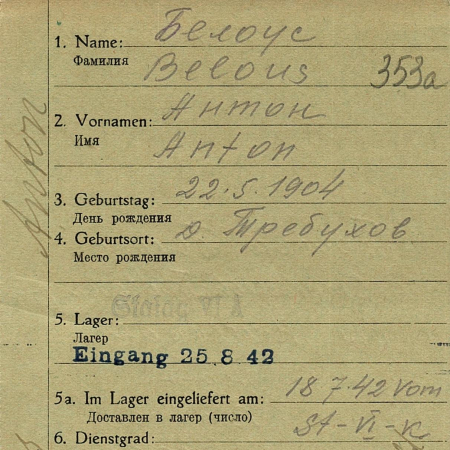 Белоус
1. Name:
Фамилия
Belous
353a
Антон
2. Vornamen:
Имя
Anton
3. Geburtstag: 22.5.1904
День рождения
4. Geburtsort: д Требухов
Место рождения
5. Lager:
Лагер
Eingang 25.8 42
5a. Im Lager eingeliefert am: 18 7.42 vom
Доставлен в лагер (число) St-VI-K
6. Dienstgrad:
Anton